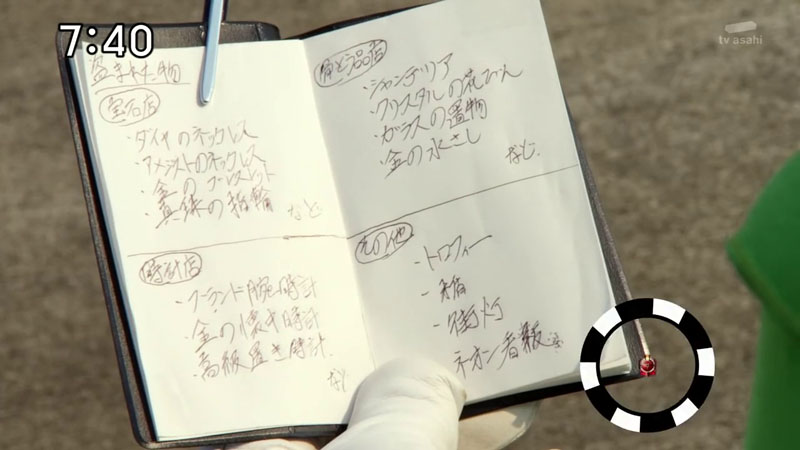 7:40
tv asahi
盗まれた物
宝石店
・ダイヤのネックレス
・アメジストのネックレス
・金のブレスレット
・真珠の指輪 など
時計店
・ブランド腕時計
・金の懐中時計
・高級置き時計
など
骨とう品店
・シャンデリア
・クリスタルの花びん
・ガラスの置物
・金の水さし
など
その他
・トロフィー
・街灯
ネオン看板